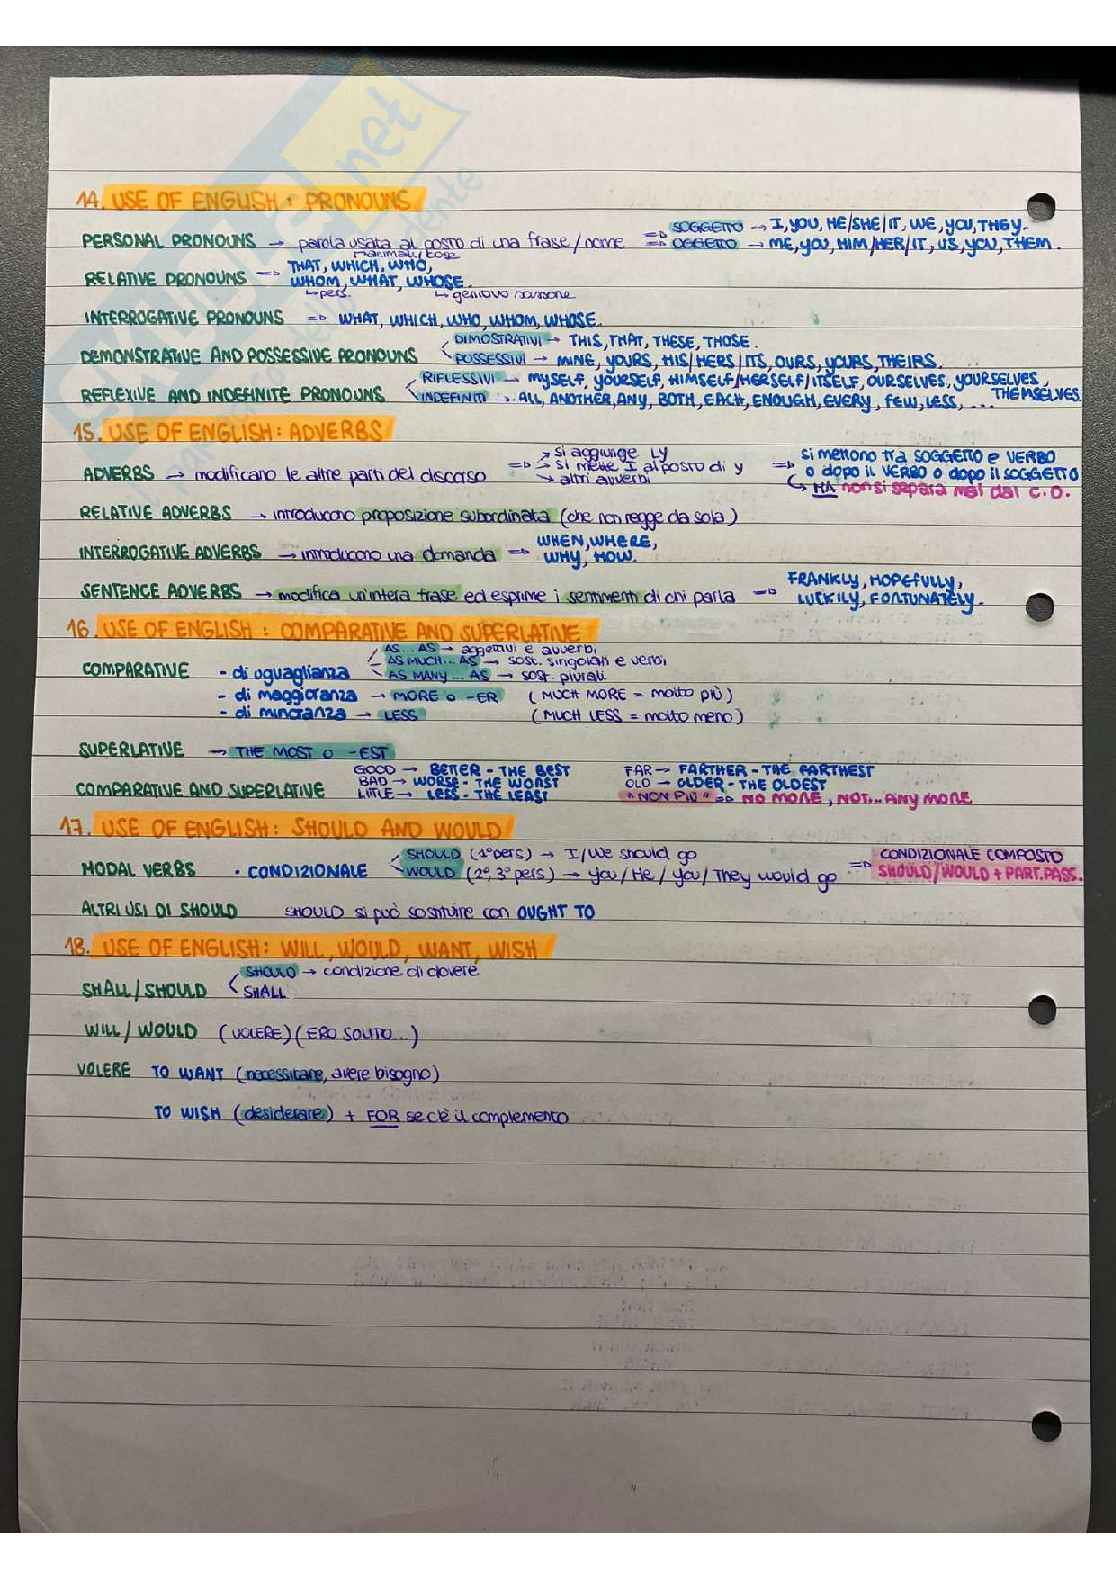 14. USE OF ENGLISH: PRONOUNS
PERSONAL PRONOUNS → parola usata al posto di una frase/nome ⇒ SOGGETTO → I, YOU, HE/SHE/IT, WE, YOU, THEY.
⇒ OGGETTO → ME, YOU, HIM/HER/IT, US, YOU, THEM.
animali/cose
RELATIVE PRONOUNS ⇒ THAT, WHICH, WHO,
WHOM, WHAT, WHOSE.
↳ pers. ↳ genitivo sassone
INTERROGATIVE PRONOUNS ⇒ WHAT, WHICH, WHO, WHOM, WHOSE.
DEMONSTRATIVE AND POSSESSIVE PRONOUNS DIMOSTRATIVI → THIS, THAT, THESE, THOSE.
POSSESSIVI → MINE, YOURS, HIS/HERS/ITS, OURS, YOURS, THEIRS.
REFLEXIVE AND INDEFINITE PRONOUNS RIFLESSIVI → MYSELF, YOURSELF, HIMSELF/HERSELF/ITSELF, OURSELVES, YOURSELVES, THEMSELVES
INDEFINITI → ALL, ANOTHER, ANY, BOTH, EACH, ENOUGH, EVERY, FEW, LESS, ...
15. USE OF ENGLISH: ADVERBS
ADVERBS → modificano le altre parti del discorso ⇒ → si aggiunge LY
→ si mette I al posto di y
→ altri avverbi
⇒ si mettono tra SOGGETTO e VERBO
o dopo il VERBO o dopo il SOGGETTO
↳ MA non si separa mai dal C.O.
RELATIVE ADVERBS → introducono proposizione subordinata (che non regge da sola)
INTERROGATIVE ADVERBS → introducono una domanda ⇒ WHEN, WHERE,
WHY, HOW.
SENTENCE ADVERBS → modifica un'intera frase ed esprime i sentimenti di chi parla ⇒ FRANKLY, HOPEFULLY,
LUCKILY, FORTUNATELY.
16. USE OF ENGLISH: COMPARATIVE AND SUPERLATIVE
COMPARATIVE - di uguaglianza AS...AS → aggettivi e avverbi
AS MUCH...AS → sost. singolari e verbi
AS MANY...AS → sost. plurali
- di maggioranza → MORE o -ER (MUCH MORE = molto più)
- di minoranza → LESS (MUCH LESS = molto meno)
SUPERLATIVE → THE MOST o -EST
COMPARATIVE AND SUPERLATIVE GOOD → BETTER - THE BEST FAR → FARTHER - THE FARTHEST
BAD → WORSE - THE WORST OLD → OLDER - THE OLDEST
LITTLE → LESS - THE LEAST "NON PIÙ" ⇒ NO MORE, NOT...ANY MORE
17. USE OF ENGLISH: SHOULD AND WOULD
MODAL VERBS • CONDIZIONALE SHOULD (1° pers) → I/We should go
WOULD (2°, 3° pers) → you/He/you/They would go
⇒ CONDIZIONALE COMPOSTO
SHOULD/WOULD + PART. PASS.
ALTRI USI DI SHOULD SHOULD si può sostituire con OUGHT TO
18. USE OF ENGLISH: WILL, WOULD, WANT, WISH
SHALL/SHOULD SHOULD → condizione di dovere
SHALL
WILL/WOULD (VOLERE) (ERO SOLITO...)
VOLERE TO WANT (necessitare, avere bisogno)
TO WISH (desiderare) + FOR se c'è il complemento